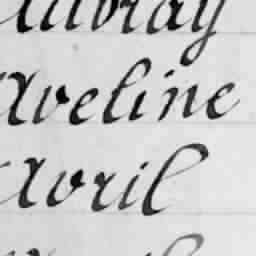 Aubray
Aveline
Avril